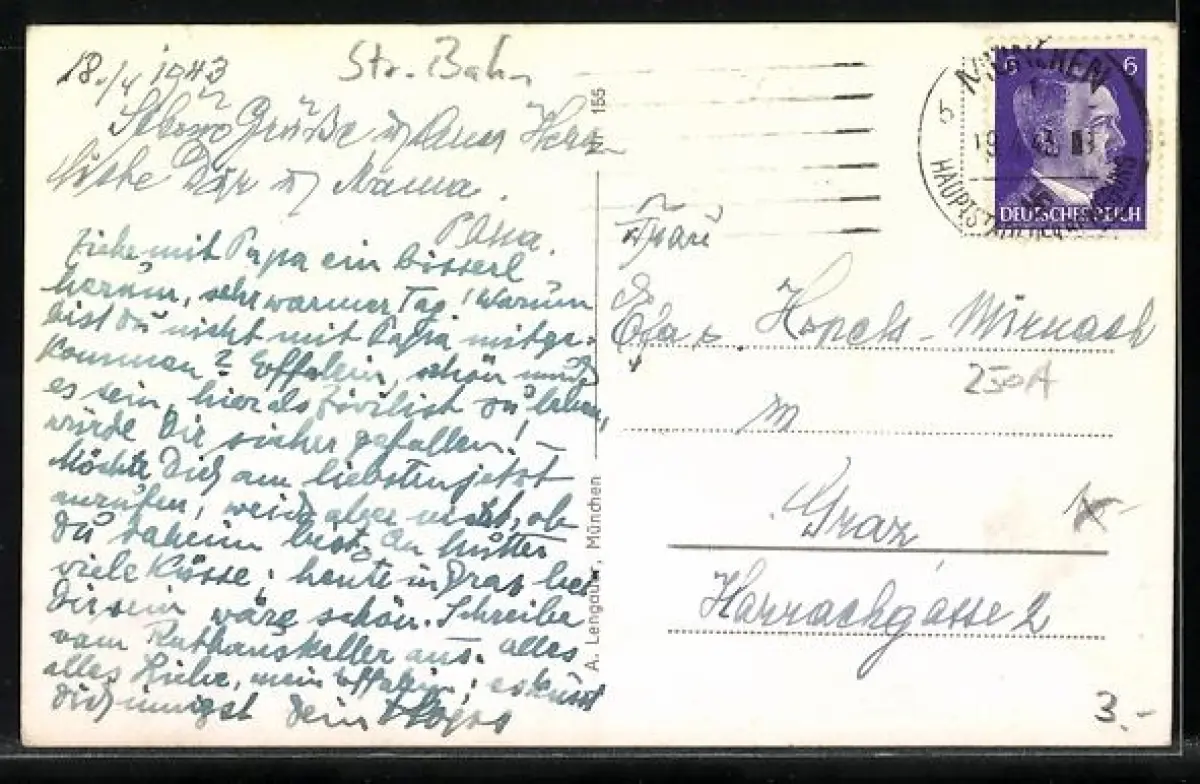 18./4 1943
Str. Bahn
Grüße
Dir u. Mama.
Papa.
Ziehe mit Papa ein bisserl
herum, sehr warmer Tag! Warum
bist Du nicht mit Papa mitge-
kommen? Effalein, schön muß
es sein, hier als Zivilist zu leben,
würde Dir sicher gefallen! –
Möchte Dich am liebsten jetzt
anrufen, weiß aber nicht, ob
Du daheim bist. An Mutter
viele Küsse; heute in Graz bei
Dir sein wäre schön. Schreibe
vom Rathauskeller aus. Alles
alles Liebe, mein Effalein; es küsst
Dich innigst Dein
Nr. 155
A. Lengauer, München
6 6
DEUTSCHES REICH
MÜNCHEN
HAUPTSTADT DER BEWEGUNG
Frau
250A
in
Graz
Harrachgasse 2
3.-